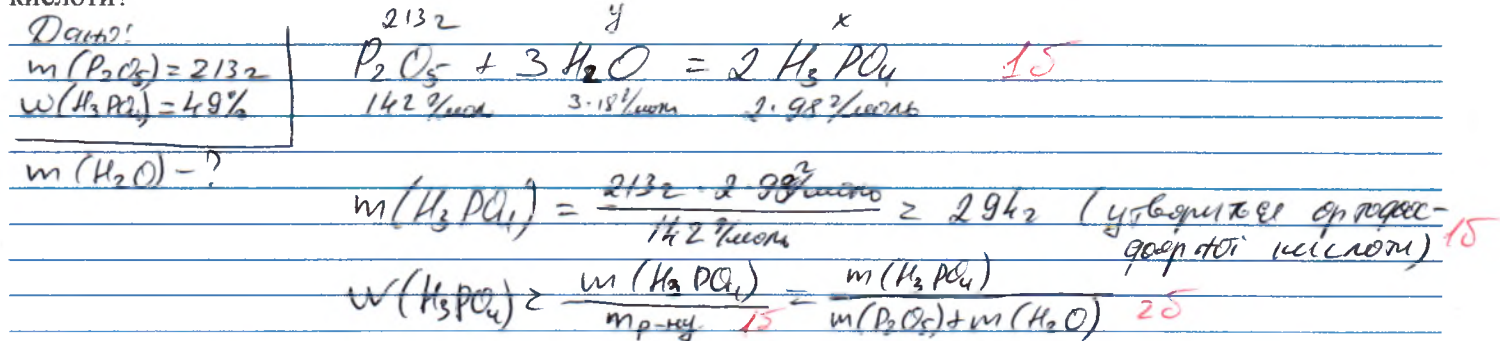 кислоти?
Дано:
m(P₂O₅) = 213г
w(H₃PO₄) = 49%
m(H₂O) - ?
213г y x
P₂O₅ + 3 H₂O = 2 H₃PO₄ 1б
142 г/моль 3·18 г/моль 2·98 г/моль
m(H₃PO₄) = 213г · 2 · 98 г/моль / 142 г/моль = 294г (утвориться ортофос-
форної кислоти) 1б
w(H₃PO₄) = m(H₃PO₄) / m р-ну 1б = m(H₃PO₄) / m(P₂O₅) + m(H₂O) 2б